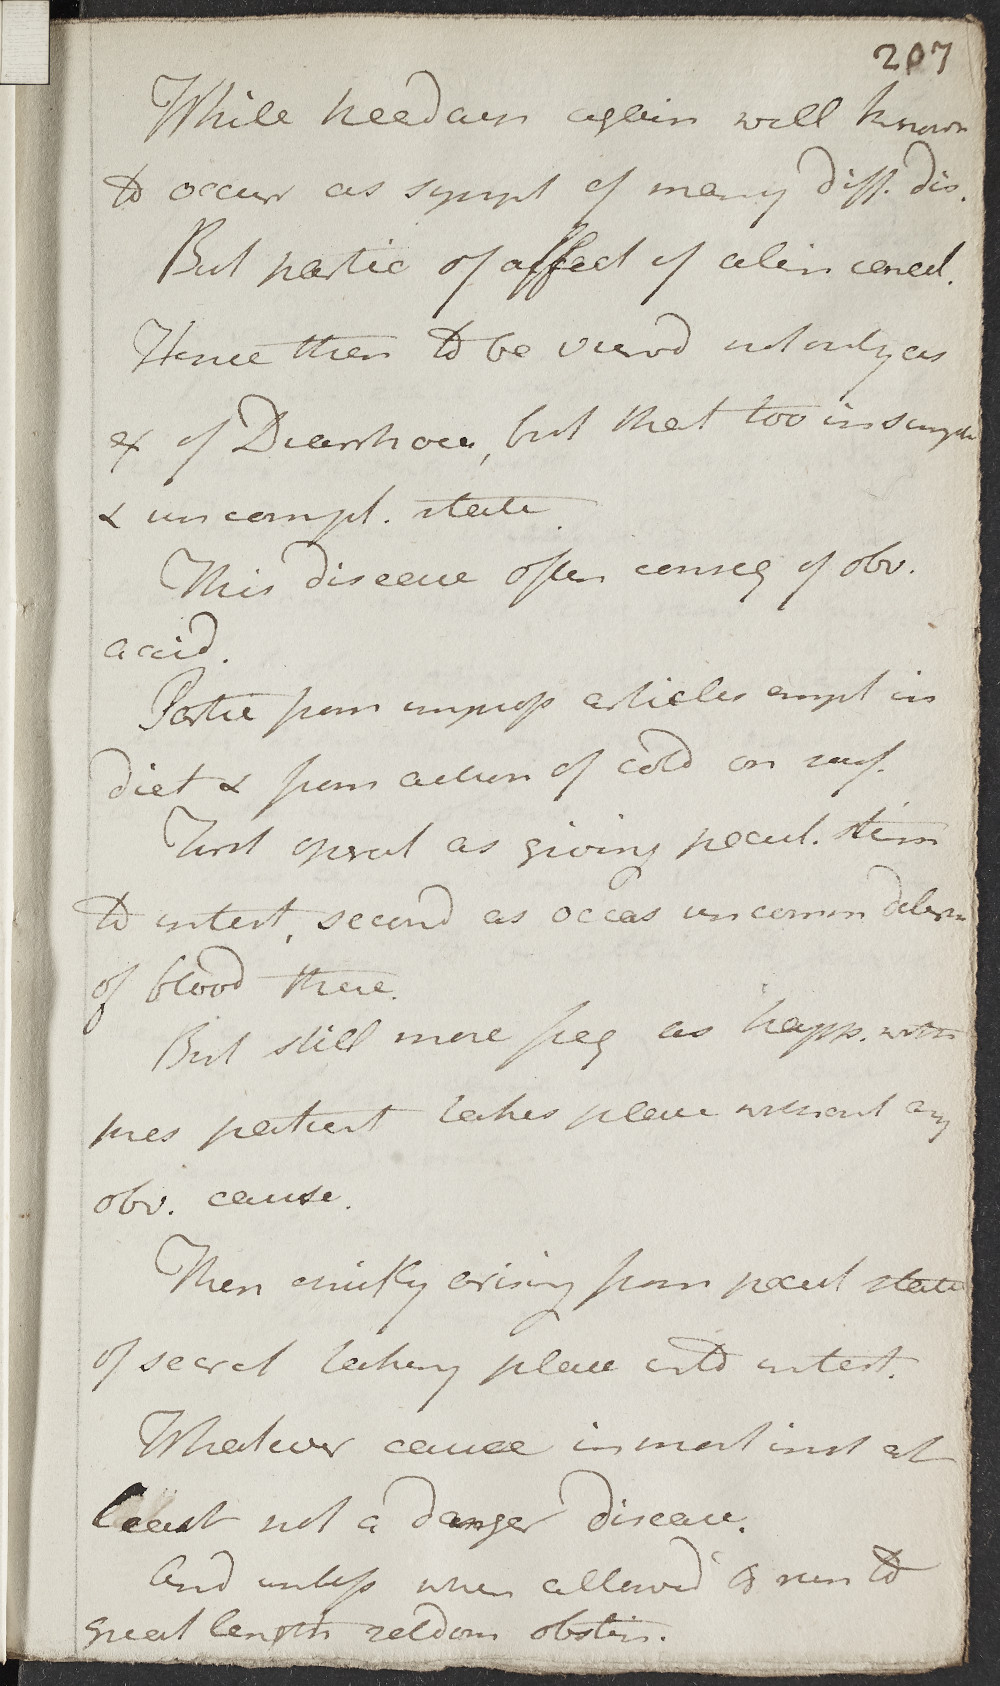 207
While headach again well known
to occur as sympt of many diff. dis.
But partic of affect of alim canal.
Hence then to be viewd not only as
ex of Diarrhoea, but that too in simple
& uncompl. state.
This disease often conseq of obv.
acid.
Partic from improp articles empl in
diet & from action of cold on surf.
First operat as giving pecul. stim
to intest, second as occas uncomm determ
of blood there.
But still more freq as happ. with
pres patient takes place without any
obv. cause.
Then chiefly arising from pecul state
of secret taking place into intest.
Whatever cause in most inst at
least not a danger disease.
And unless when allowed to run to
great length seldom obstin.